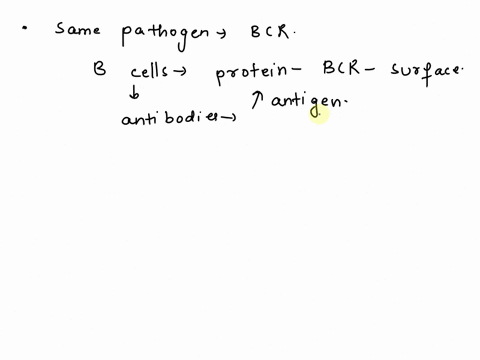 • Same pathogen → BCR.
B cells → protein - BCR - surface.
↓ ↑ antigen.
antibodies →